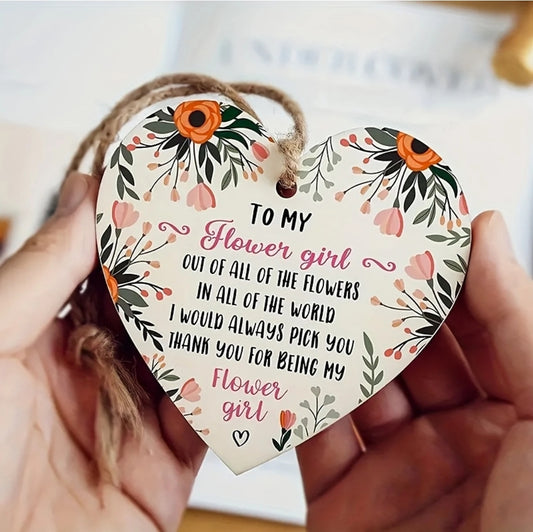 TO MY
Flower girl
OUT OF ALL OF THE FLOWERS
IN ALL OF THE WORLD
I WOULD ALWAYS PICK YOU
THANK YOU FOR BEING MY
Flower
girl